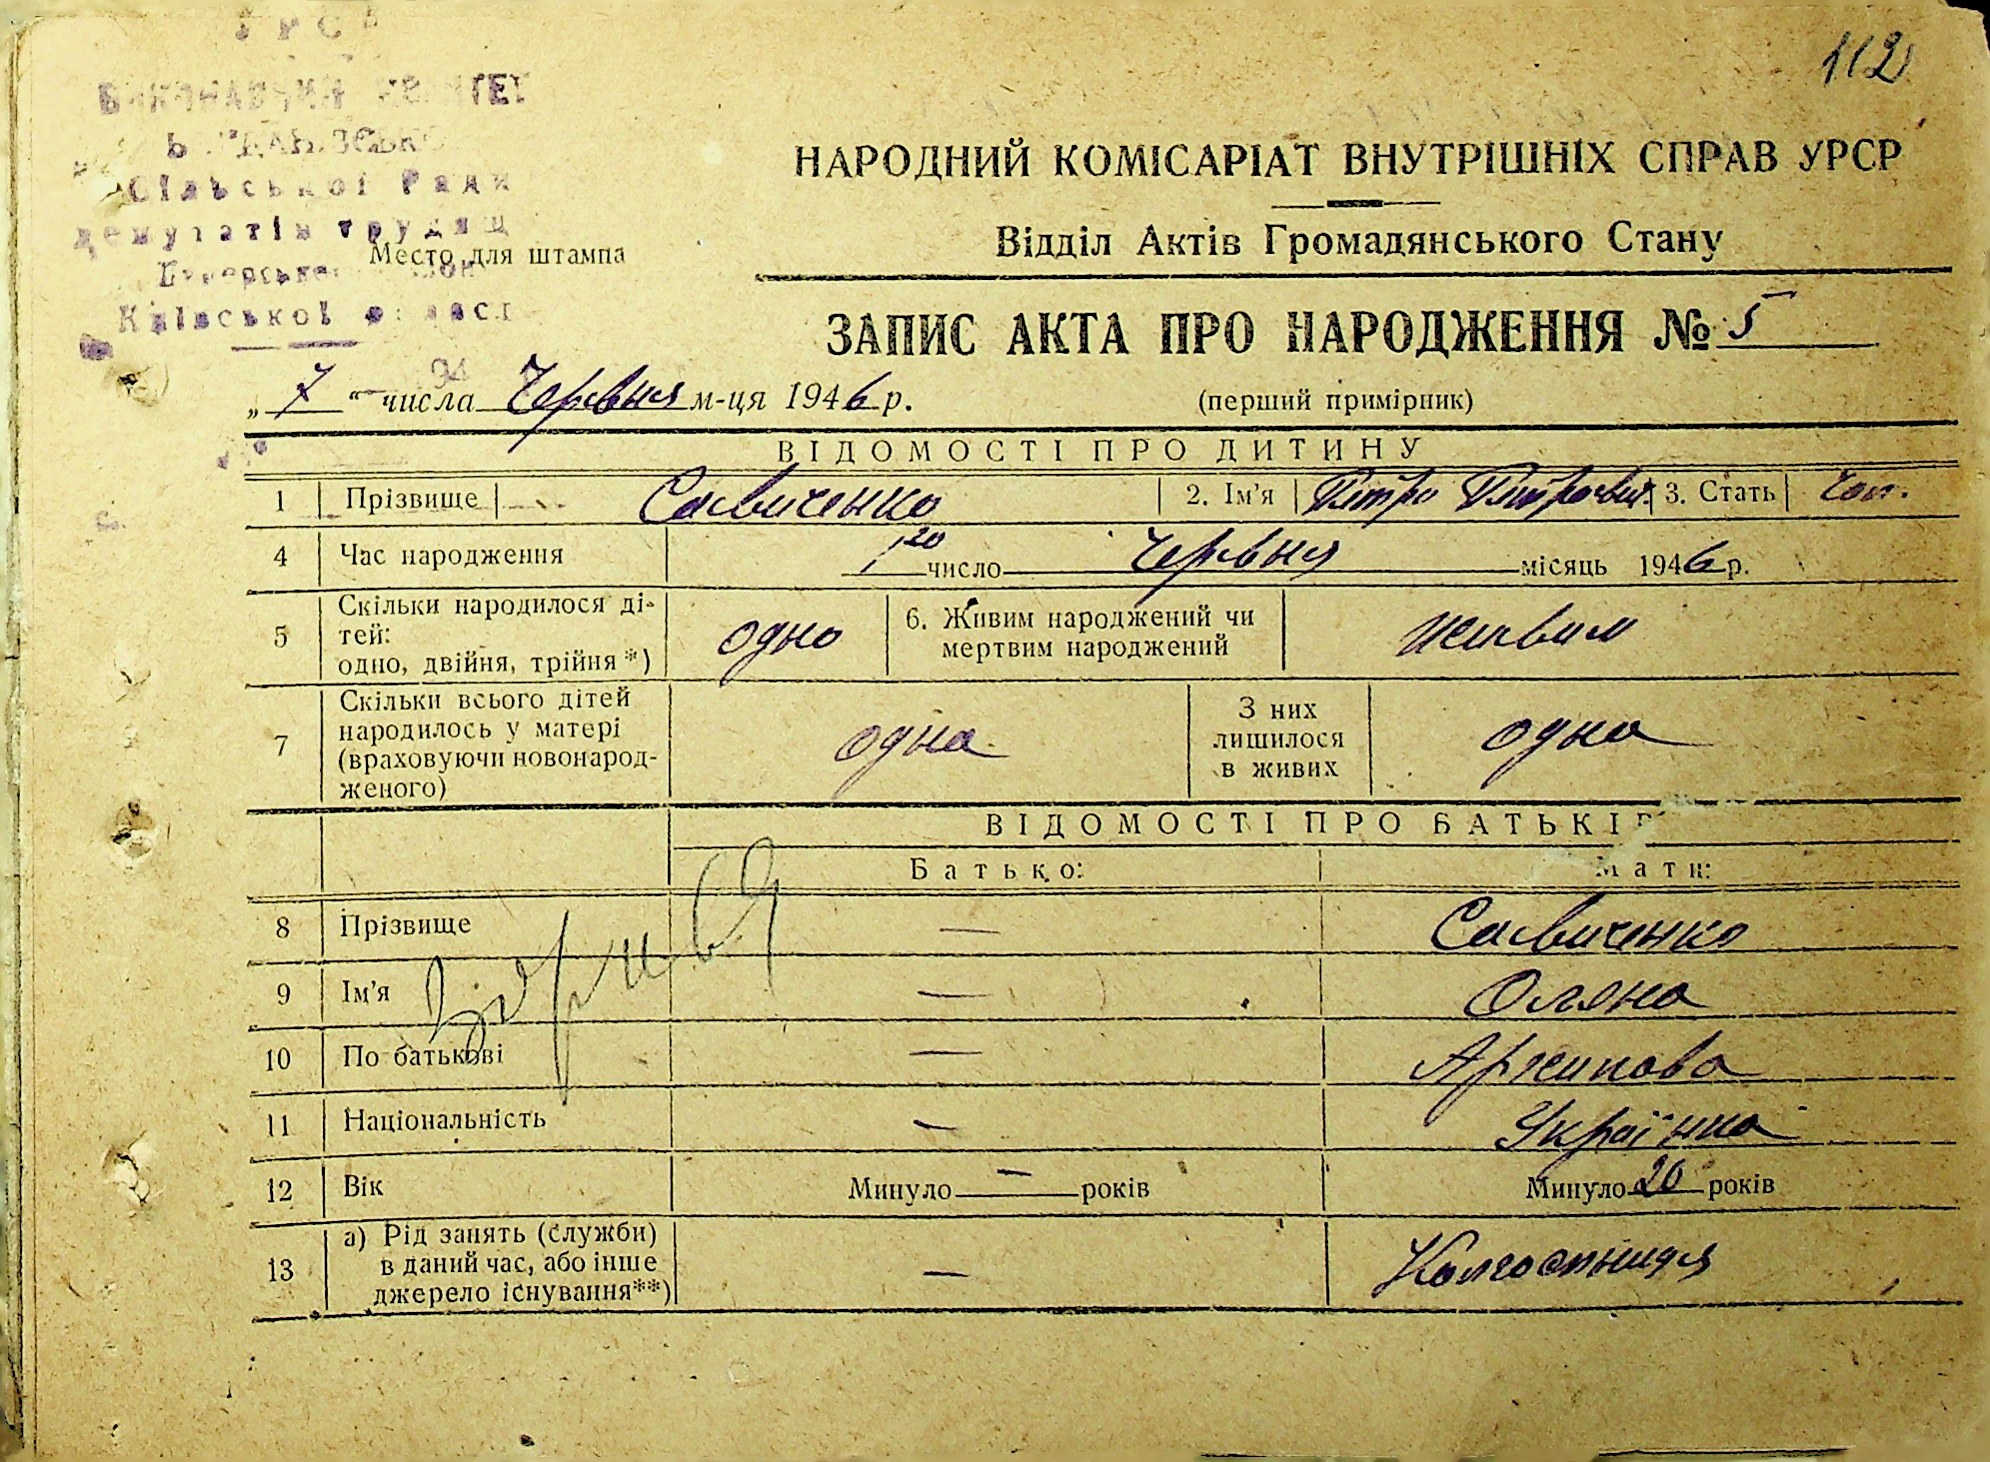 112
Сільської Ради
депутатів трудящ
Место для штампа
Київської
НАРОДНИЙ КОМІСАРІАТ ВНУТРІШНІХ СПРАВ УРСР
Відділ Актів Громадянського Стану
ЗАПИС АКТА ПРО НАРОДЖЕННЯ № 5
„ 7 “ числа Червня м-ця 1946 р.
(перший примірник)
ВІДОМОСТІ ПРО ДИТИНУ
1 Прізвище Савиченко 2. Ім'я Петро Петрович 3. Стать чол.
4 Час народження 1го число Червня місяць 1946 р.
5 Скільки народилося ді-
тей:
одно, двійня, трійня *)
одно
6. Живим народжений чи
мертвим народжений
живим
7 Скільки всього дітей
народилось у матері
(враховуючи новонарод-
женого)
одна
З них
лишилося
в живих
одна
ВІДОМОСТІ ПРО БАТЬКІВ
Батько: Мати:
8 Прізвище — Савиченко
9 Ім'я — Оляна
10 По батькові — Архипова
11 Національність — Українка
12 Вік Минуло — років Минуло 20 років
13 а) Рід занять (служби)
в даний час, або інше
джерело існування**)
— Колгоспниця